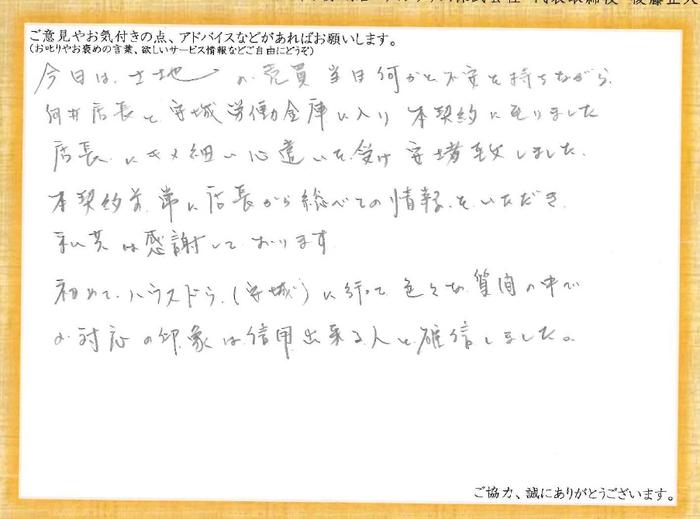 ご意見やお気付きの点、アドバイスなどがあればお願いします。
(お叱りやお褒めの言葉、欲しいサービス情報などご自由にどうぞ)
今日は、土地の売買 当日 何かと不安を持ちながら
店長と安城 労働金庫に入り 本契約に至りました
店長にキメ細い心遣いを受け 安堵致しました。
本契約前、常に店長から総べての情報をいただき
私共は感謝しております
初めて、ハウスドゥ(安城)に行って 色々な質問の中で
の対応の印象は信用出来る人と確信しました。
ご協力、誠にありがとうございます。